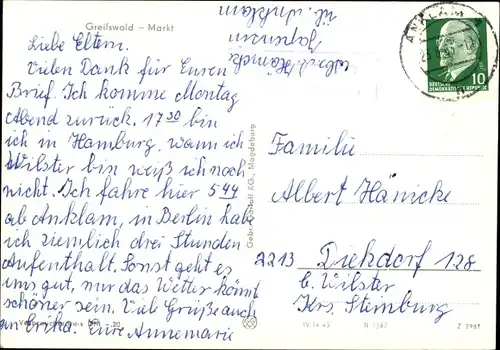 Greifswald — Markt
Liebe Eltern.
Vielen Dank für Euren
Brief. Ich komme Montag
Abend zurück. 17 30 bin
ich in Hamburg, wann ich
Wilster bin weiß ich noch
nicht. Ich fahre hier 5 44
ab Anklam, in Berlin habe
ich ziemlich drei Stunden
Aufenthalt. Sonst geht es
uns gut, nur das Wetter könnt
schöner sein. Viel Grüße auch
an Erika. Eure Annemarie
ü. Anklam
ANKLAM
10
DEUTSCHE
DEMOKRATISCHE REPUBLIK
Gebr. Garloff KG., Magdeburg
Familie
Albert Hänicke
2213 Diekdorf 128
b. Wilster
Krs. Steinburg
20
W-14-45 N 1/67 Z 2937